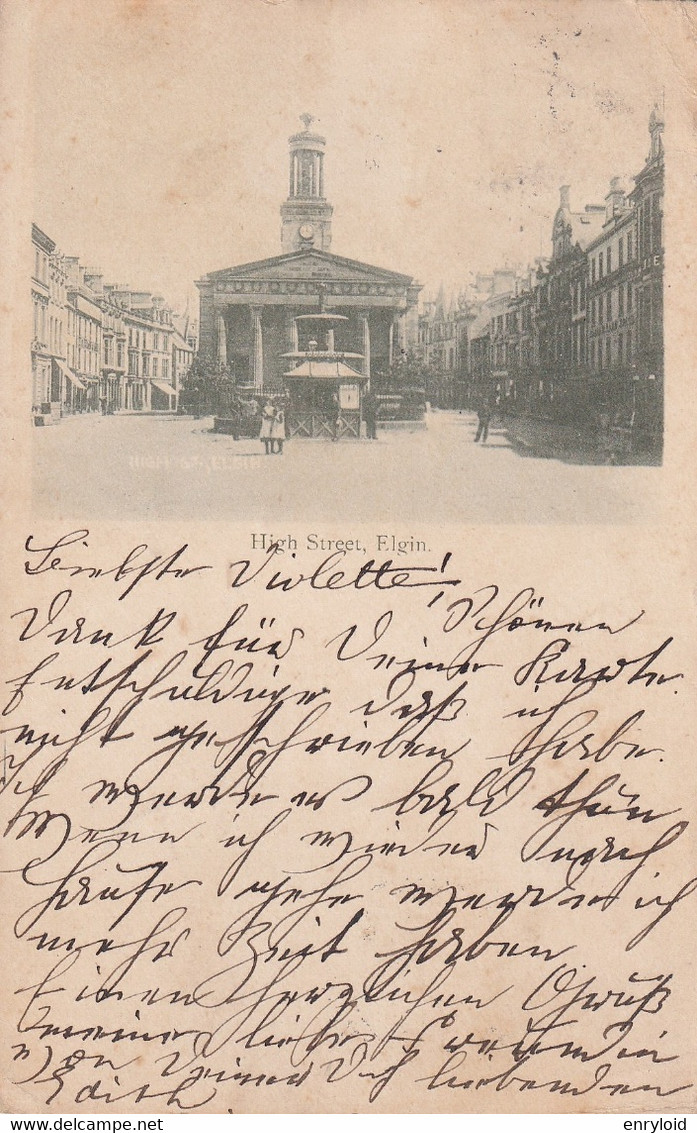 HIGH ST., ELGIN
High Street, Elgin.
Liebste Violette!
Schönen
Dank für Deine Karte.
Entschuldige daß ich
nicht geschrieben habe.
ich werde es bald thun
Wenn ich wieder nach
Hause gehe werde ich
mehr Zeit haben.
Einen herzlichen Gruß
meine liebe Freundin
von Deiner Dich liebenden
Edith
delcampe.net
enryloid